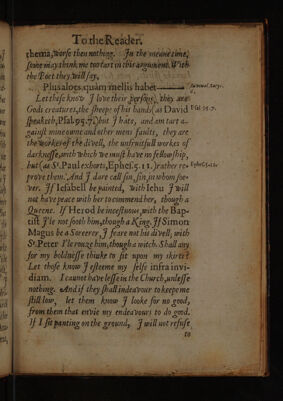 To the Reader.
thema, worse then nothing. In the meane time,
some may think me too tart in this argument. With
the Poet they will say,
Plus aloes quàm mellis habet
Let these know I love their persons, they are
Gods creatures, the sheepe of his hands, as David
speaketh, Psal. 95. 7. but I hate, and am tart a-
gainst mine owne and other mens faults, they are
the workes of the divell, the unfruitfull workes of
darknesse, with which we must have no fellowship,
but (as St. Paul exhorts, Ephes. 5. 11.) rather re-
prove them. And I dare call sin, sin, in whom soe-
ver. If Iesabell be painted, with Iehu I will
not have peace with her to commend her, though a
Queene. If Herod be incestuous, with the Bap-
tist I'le not sooth him, though a King. If Simon
Magus be a Sorcerer, I feare not his divell; with
St. Peter I'le rouze him, though a witch. Shall any
for my boldnesse thinke to sit upon my skirts?
Let those know I esteeme my selfe infra invi-
diam. I cannot have lesse in the Church, unlesse
nothing. And if they shall indeavour to keepe me
still low, let them know I looke for no good,
from them that envie my endeavours to do good.
If I sit panting on the ground, I will not refuse
to
Juvenal. Satyr.
Psal. 95. 7.
Ephes. 5. 11.